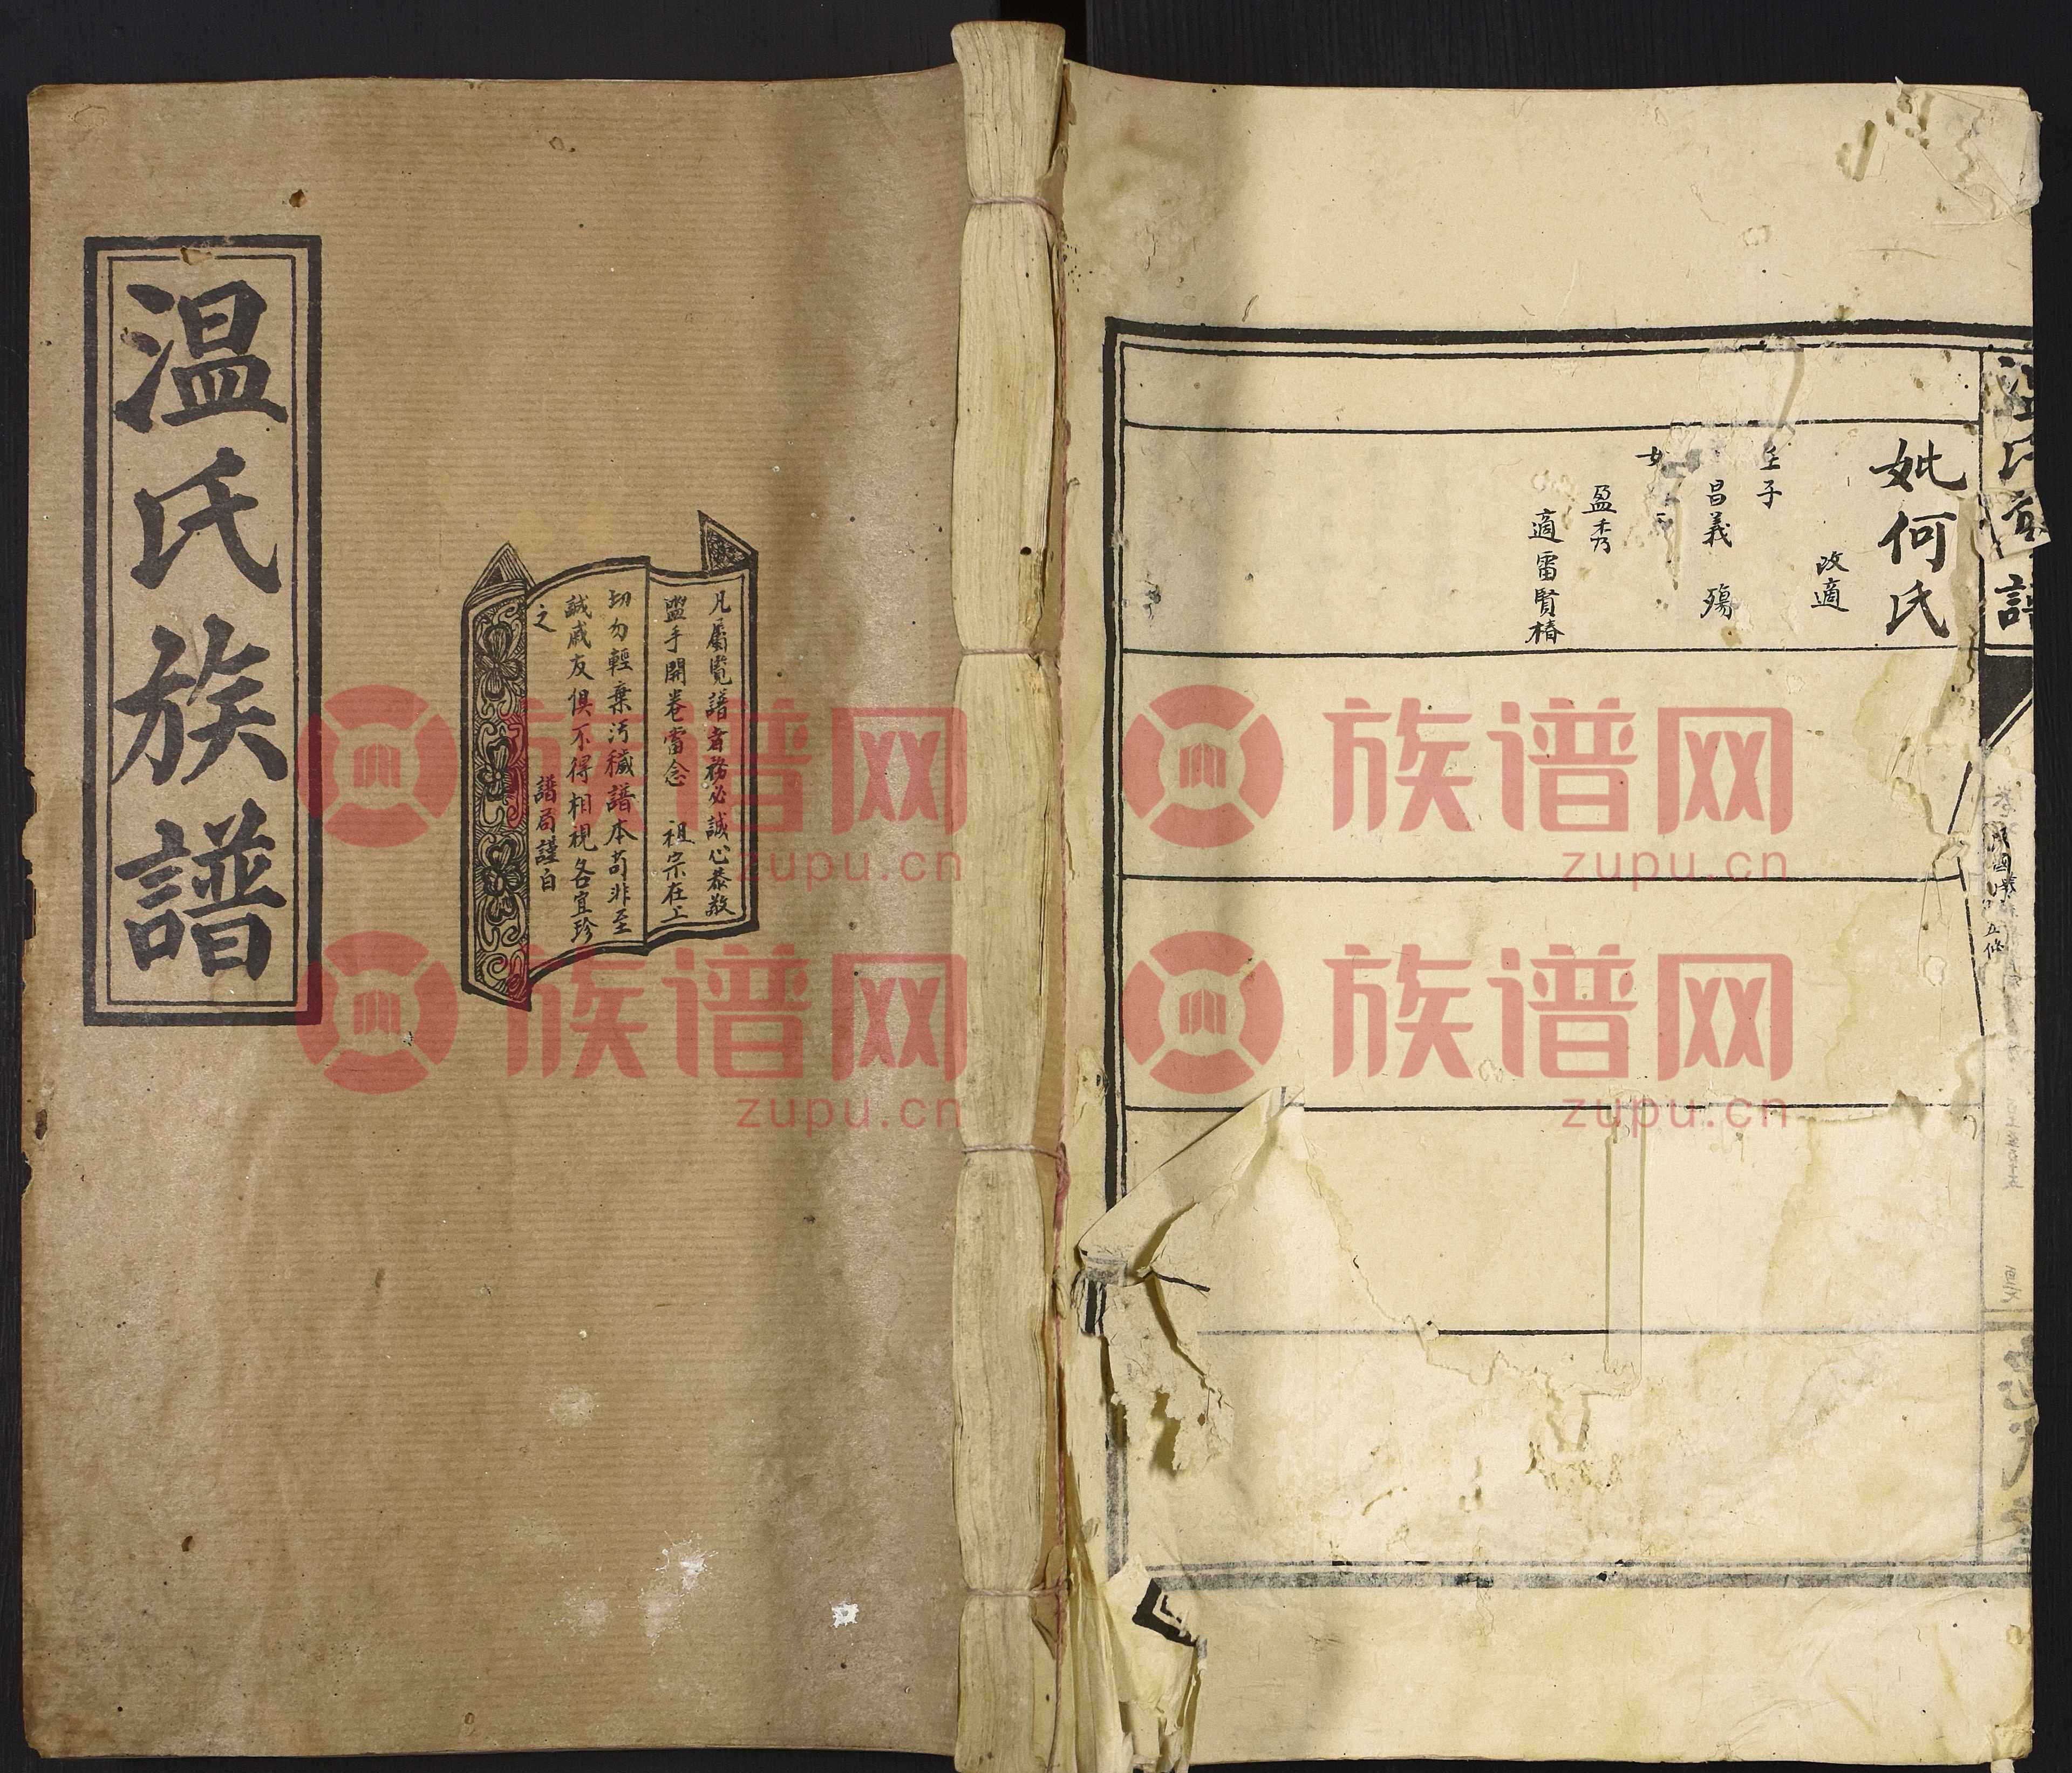 温氏族譜
凡屬覽譜者務必誠心恭敬
盥手開卷當念 祖宗在上
切勿輕棄汚穢譜本苟非至
誠戚友俱不得相視各宜珍
之
譜局謹白
妣何氏
改適
生子
昌義 殤
女
盈秀
適雷賢椿
五修
族谱网
zupu.cn
族谱网
zupu.cn
族谱网
zupu.cn
族谱网
zupu.cn